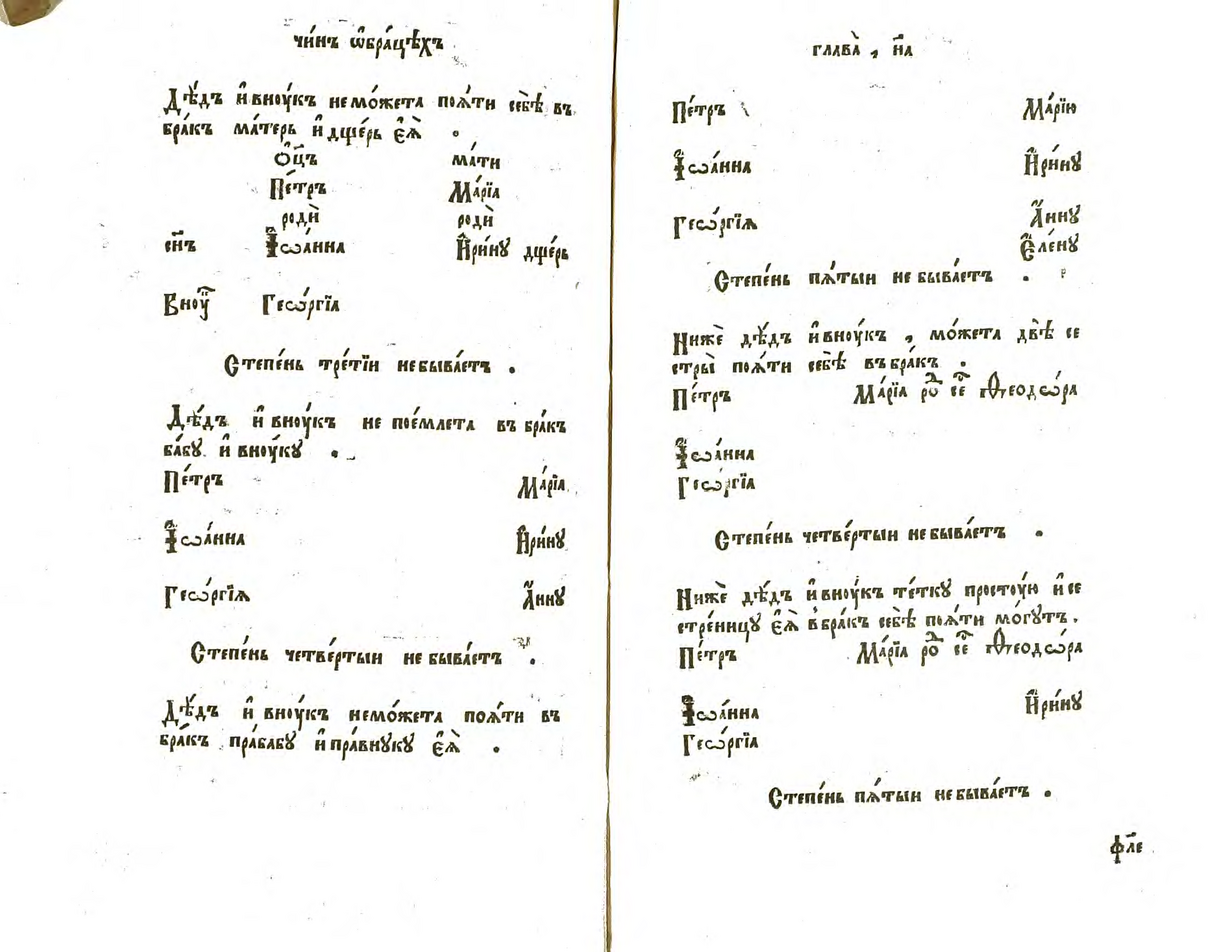 чи́нъ ѡ҆бра́цѣхъ
Дѣ́дъ и҆ вноу́къ не мо́жета поѧ́ти себѣ̀ въ
бра́къ ма́терь и҆ дще́рь є҆ѧ̀ .
ѻ҆ц҃ъ ма́ти
Пе́тръ Ма́рїа
родѝ родѝ
сн҃ъ І҆ѡа́нна И҆ри́ну дще́рь
Вноу́ Геѡ́ргїа
Степе́нь тре́тїи не быва́етъ .
Дѣ́дъ и҆ вноу́къ не пое́млета въ бра́къ
ба́бу и҆ вноу́ку .
Пе́тръ Ма́рїа
І҆ѡа́нна И҆ри́ну
Геѡ́ргїѧ А҆́нну
Степе́нь четве́ртыи не быва́етъ .
Дѣ́дъ и҆ вноу́къ не мо́жета поѧ́ти въ
бра́къ пра́бабу и҆ пра́внуку є҆ѧ̀ .
глава̀ , н҃а
Пе́тръ Ма́рїю
І҆ѡа́нна И҆ри́ну
Геѡ́ргїѧ А҆́нну
Є҆ле́ну
Степе́нь пѧ́тыи не быва́етъ .
Нижѐ дѣ́дъ и҆ вноу́къ , мо́жета двѣ̀ се
стры̀ поѧ́ти себѣ̀ въ бра́къ .
Пе́тръ Ма́рїа роⷣ сеⷭ҇ Ѳеодѡ́ра
І҆ѡа́нна
Геѡ́ргїа
Степе́нь четве́ртыи не быва́етъ .
Нижѐ дѣ́дъ и҆ вноу́къ те́тку просто́ую и҆ се
стре́ницу є҆ѧ̀ в бра́къ себѣ̀ поѧ́ти мо́гутъ .
Пе́тръ Ма́рїа роⷣ сеⷭ҇ Ѳеодѡ́ра
І҆ѡа́нна И҆ри́ну
Геѡ́ргїа
Степе́нь пѧ́тыи не быва́етъ .
ф҃ле